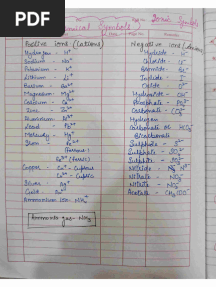 PDF
Chemical Symbols
Ionic Symbols
Positive Ions (Cations)
Negative Ions
Hydrogen - H⁺
Sodium - Na⁺
Potassium - K⁺
Lithium - Li⁺
Barium - Ba²⁺
Magnesium - Mg²⁺
Calcium - Ca²⁺
Zinc - Zn²⁺
Aluminium - Al³⁺
Lead - Pb²⁺
Mercury - Hg²⁺
Iron - Fe²⁺
(ferrous)
Fe³⁺ (ferric)
Copper - Cu⁺ - Cuprous
Cu²⁺ - Cupric
Silver - Ag⁺
Ammonium ion - NH₄⁺
Ammonia gas - NH₃
Hydride - H⁻
Chloride - Cl⁻
Bromide - Br⁻
Iodide - I⁻
Oxide - O²⁻
Hydroxide - OH⁻
Phosphate - PO₄³⁻
Carbonate - CO₃²⁻
Hydrogen
Carbonate or HCO₃⁻
Bicarbonate
Sulphide - S²⁻
Sulphite - SO₃²⁻
Sulphate - SO₄²⁻
Nitride - N³⁻
Nitrate - NO₃⁻
Nitrite - NO₂⁻
Acetate - CH₃COO⁻